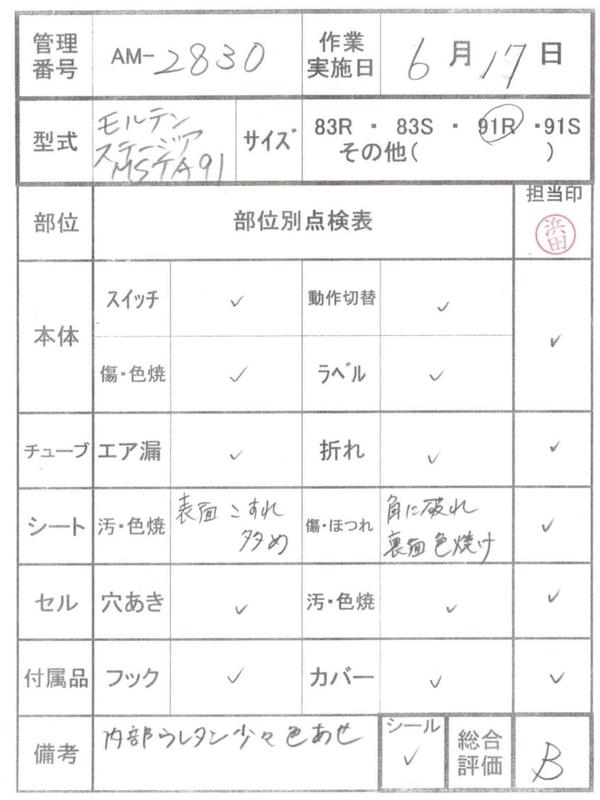 管理番号 AM-2830 作業実施日 6月17日
型式 モルテン ステージア MSTA91 サイズ 83R ・ 83S ・ 91R ・91S
その他( )
部位 部位別点検表 担当印 浜田
本体 スイッチ ✓ 動作切替 ✓ ✓
傷・色焼 ✓ ラベル ✓
チューブ エア漏 ✓ 折れ ✓ ✓
シート 汚・色焼 表面こすれ多め 傷・ほつれ 角に破れ 裏面色焼け ✓
セル 穴あき ✓ 汚・色焼 ✓ ✓
付属品 フック ✓ カバー ✓ ✓
備考 内部ウレタン少々色あせ シール ✓ 総合評価 B